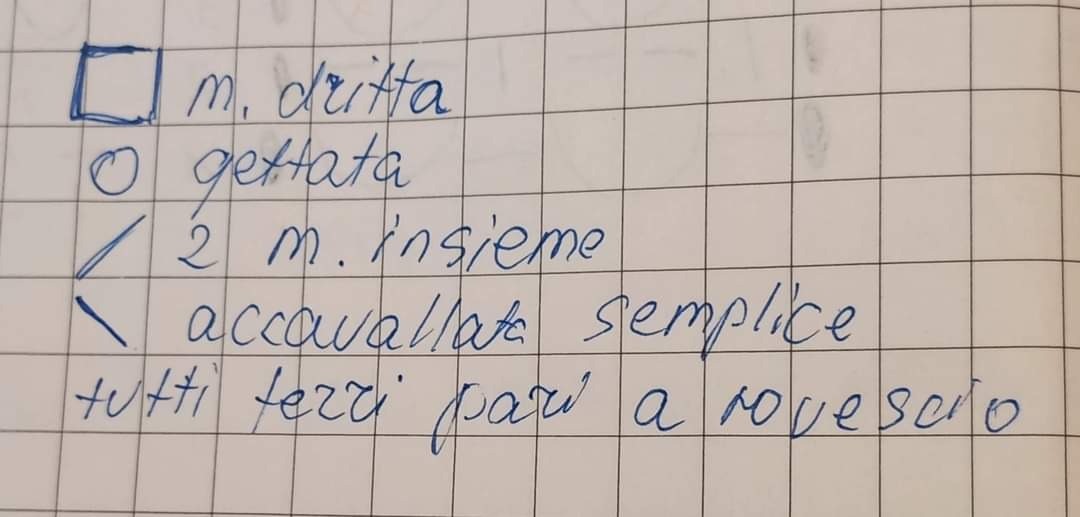 □ m. dritta
O gettata
/ 2 m. insieme
\ accavallata semplice
tutti ferri pari a rovescio